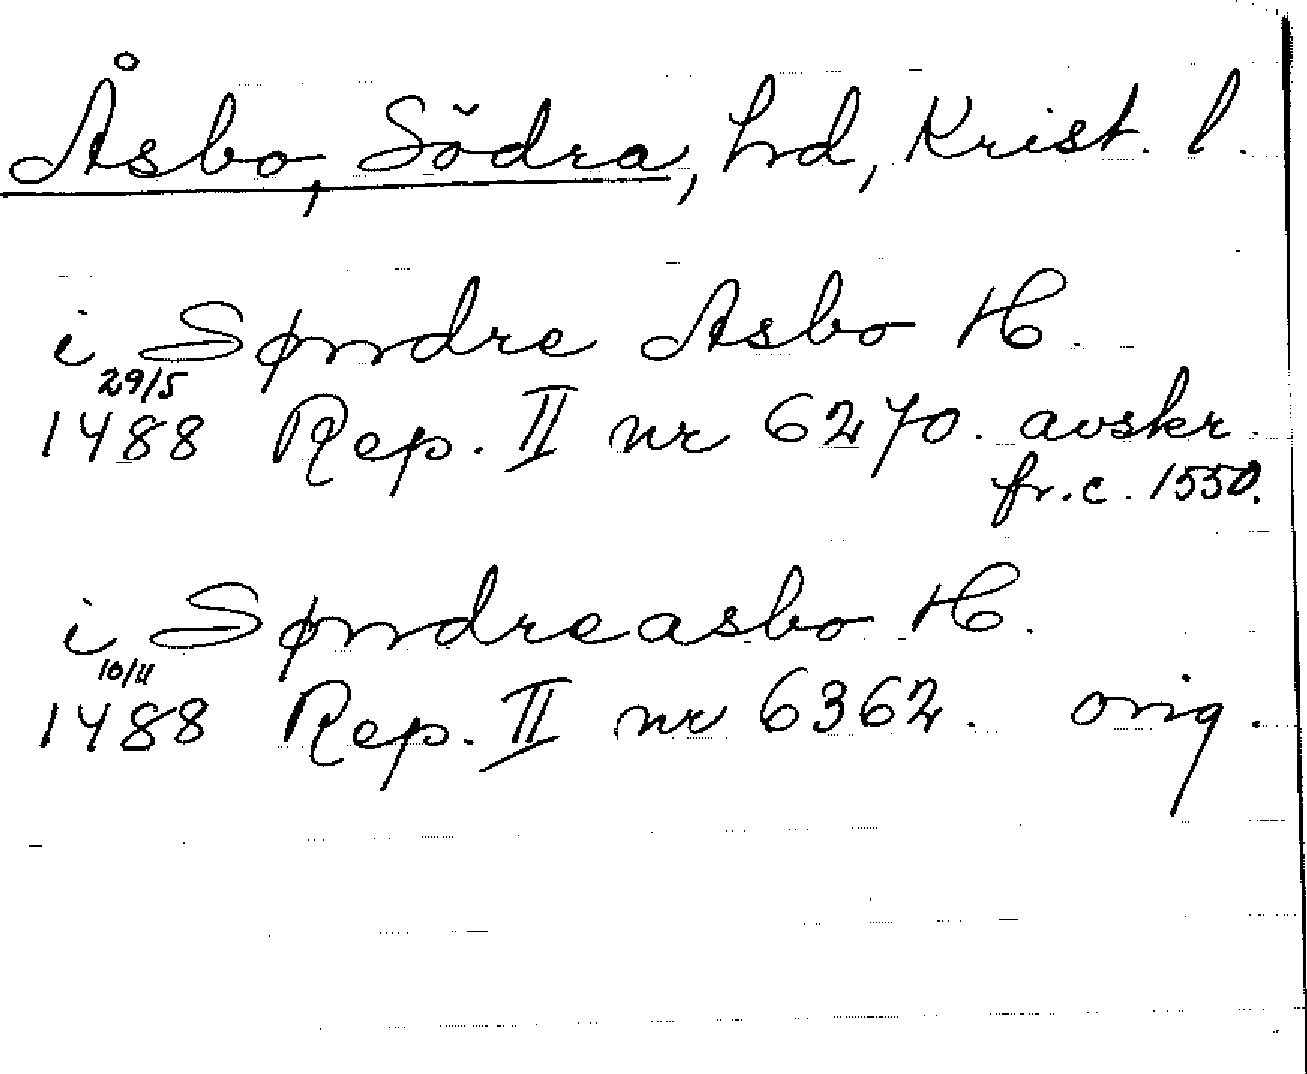 Åsbo, Södra, hrd, Krist. l.
i Søndre Asbo H.
29/5
1488 Rep. II nr 6270. avskr.
fr. c. 1550.
i Søndreasbo H.
10/11
1488 Rep. II nr 6362. orig.